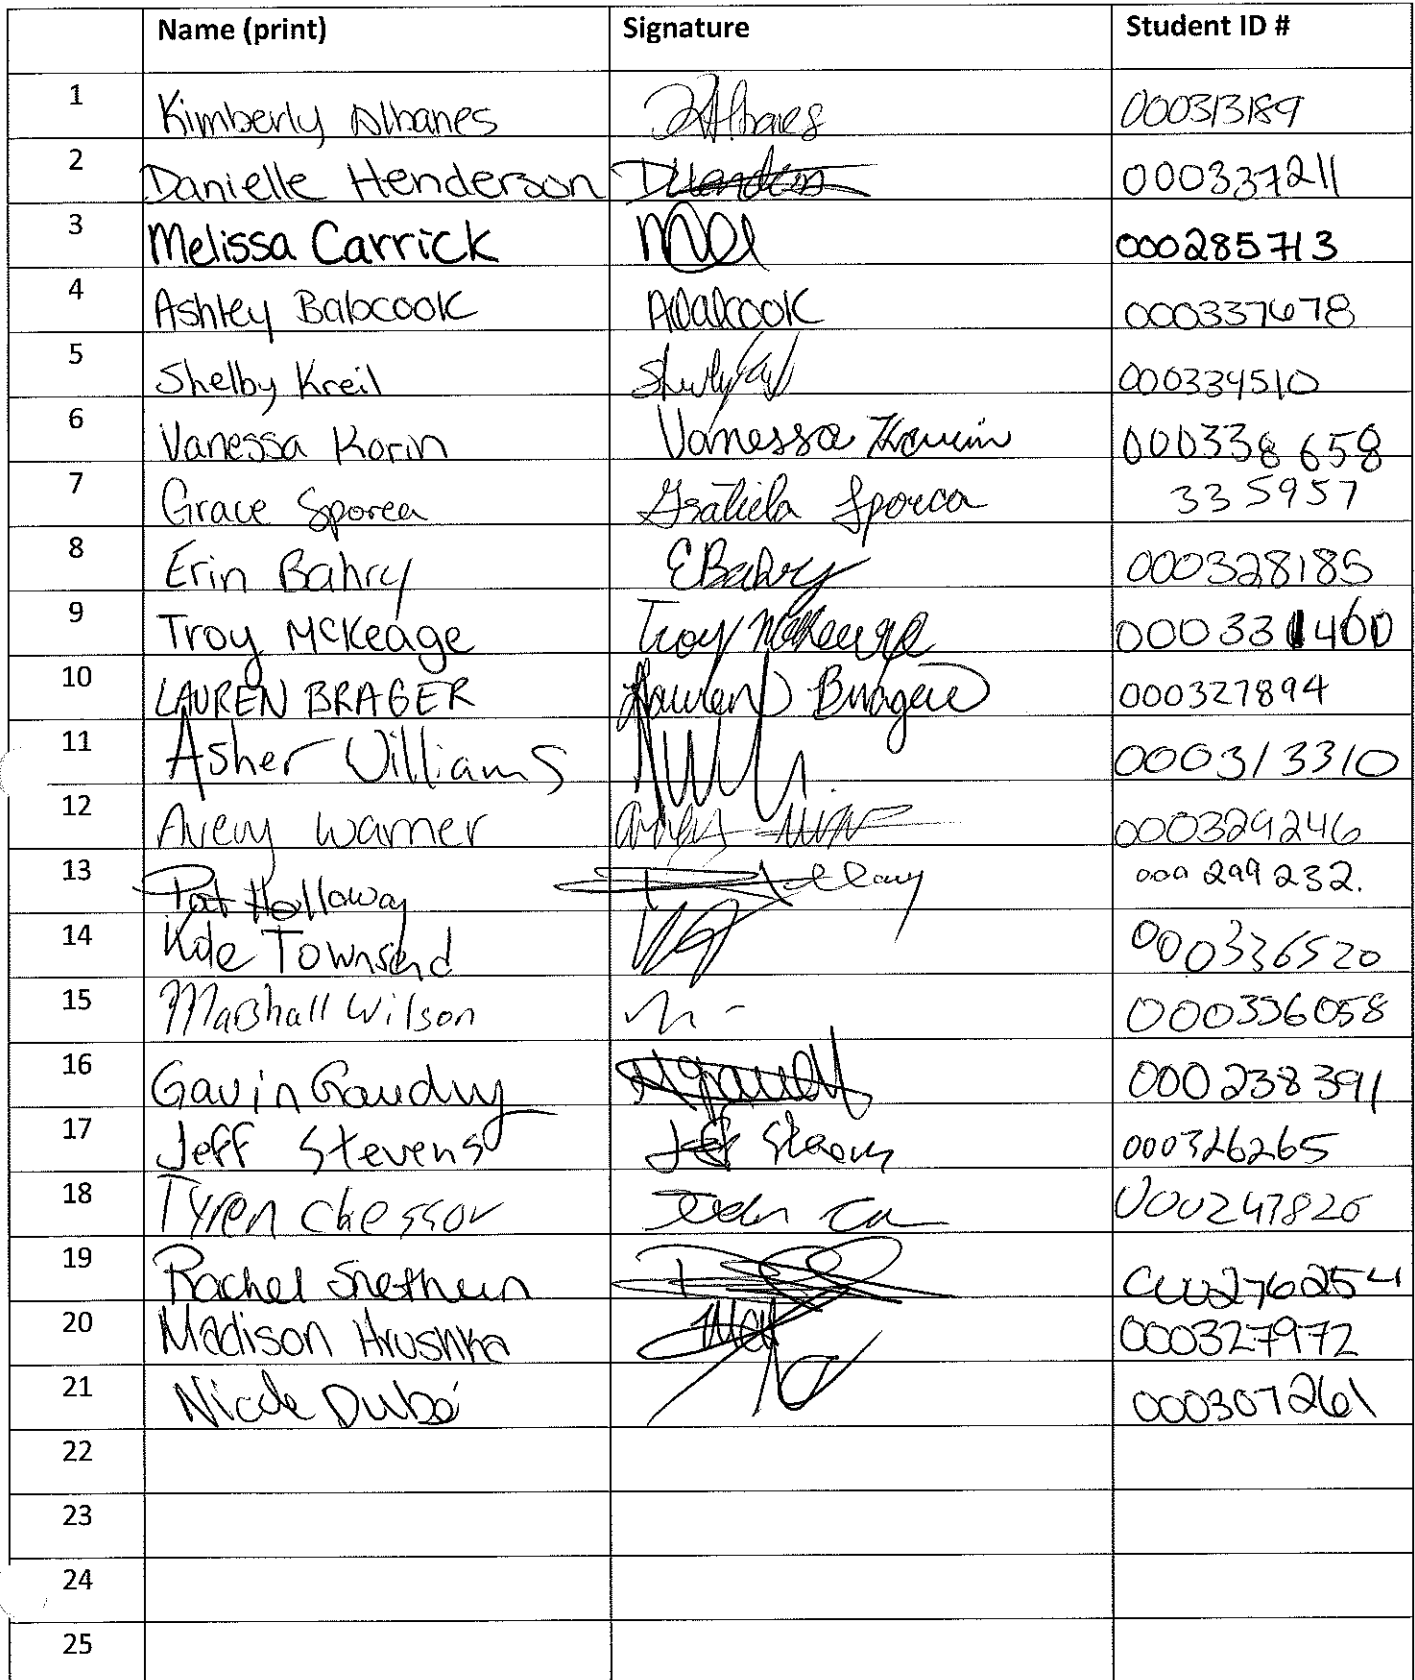 Name (print) Signature Student ID #
1 Kimberly Albanes 000313189
2 Danielle Henderson 000337211
3 Melissa Carrick 000285713
4 Ashley Babcook ABabcook 000337678
5 Shelby Kreil 000334510
6 Vanessa Korin Vanessa 000338658
7 Grace Sporea Gratiela Sporea 335957
8 Erin Bahry EBahry 000328185
9 Troy McKeage Troy McKeage 000331400
10 LAUREN BRAGER Lauren Brager 000327894
11 Asher Williams 000313310
12 Avery Warner 000329246
13 Pat Holloway 000 299 232.
14 Kole Townsend 000336520
15 Marshall Wilson 000336058
16 Gavin Gaudry 000238391
17 Jeff Stevens Jeff Stevens 000326265
18 Tyren Chessor 000247826
19 Rachel 000276254
20 Madison Hrushka 000327972
21 Nicole Dubé 000307261
22
23
24
25